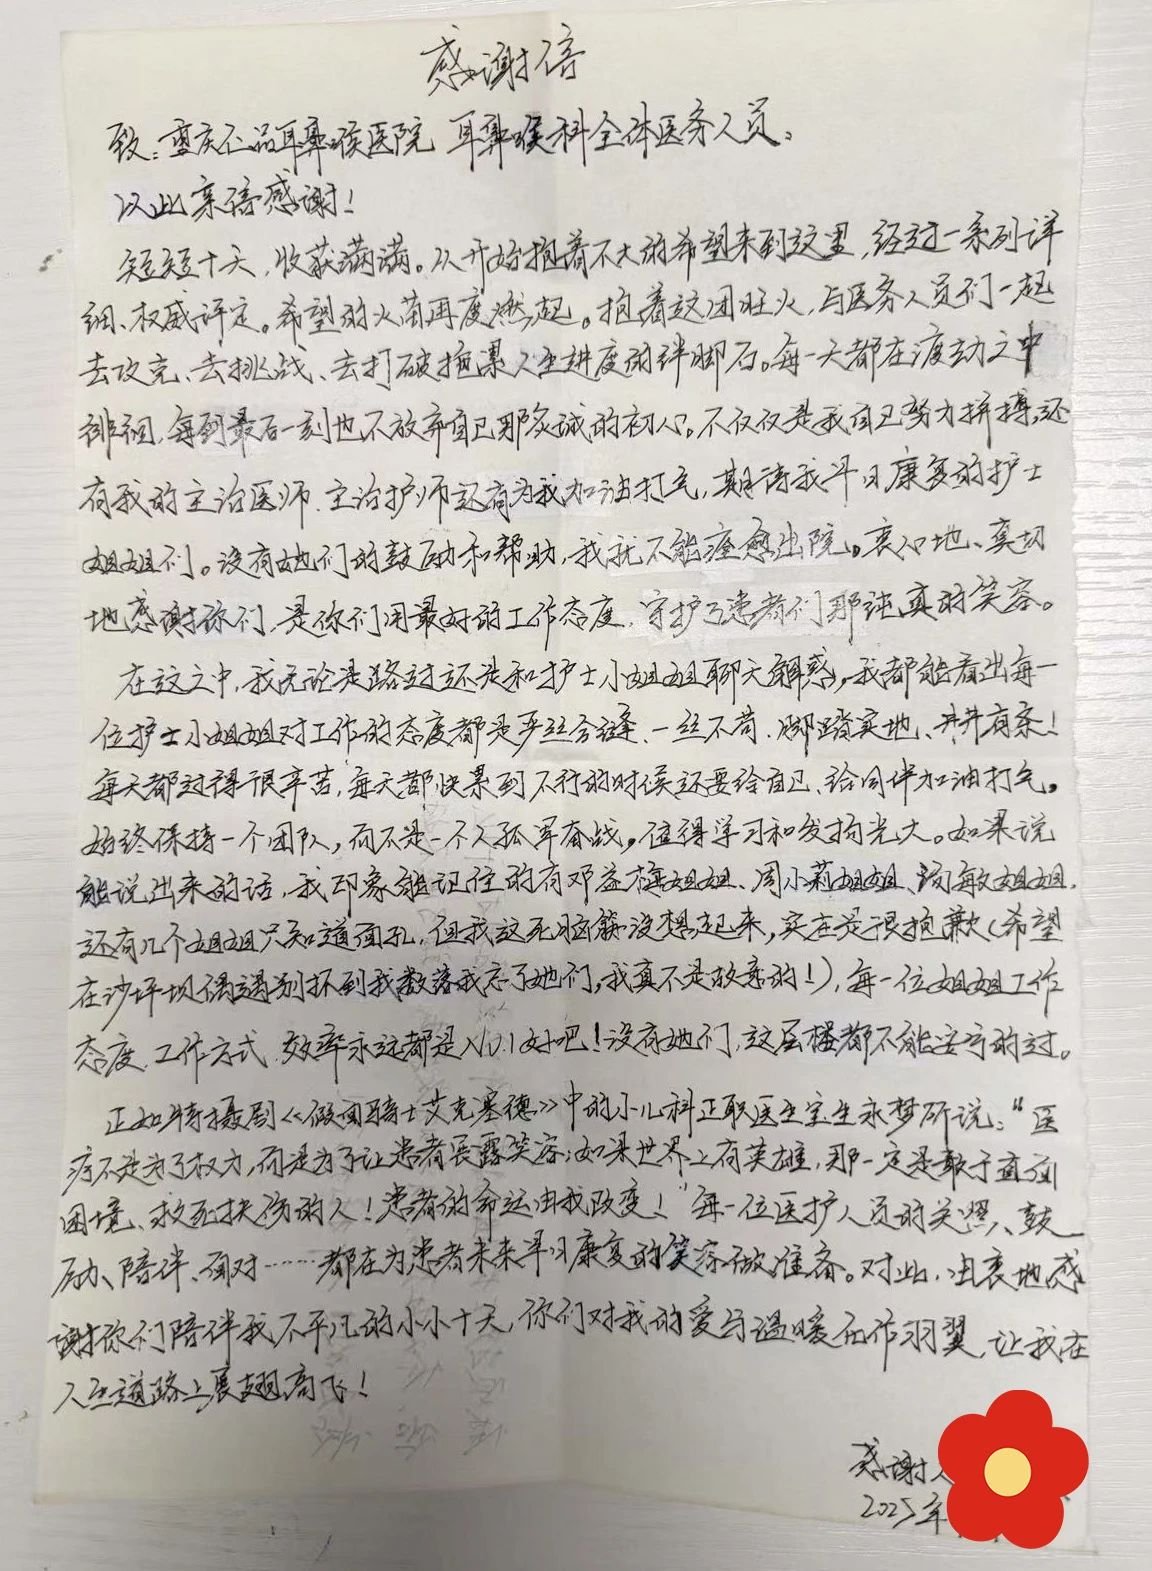 感谢信
致:重庆仁品耳鼻喉医院 耳鼻喉科全体医务人员。
以此亲信感谢!
短短十天,收获满满。从开始抱着不大的希望来到这里,经过一系列详
细、权威评定。希望的火苗再度燃起。抱着这团旺火,与医务人员们一起
去攻克、去挑战、去打破拖累人生进度的绊脚石。每一天都在波动之中
徘徊,每到最后一刻也不放弃自己那份诚的初心。不仅仅是我自己努力拼搏,还
有我的主治医师、主治护师还有为我加油打气,期待我早日康复的护士
姐姐们。没有她们的鼓励和帮助,我就不能痊愈出院。衷心地、真切
地感谢你们,是你们用最好的工作态度,守护了患者们那纯真的笑容。
在这之中,我无论是路过还是和护士小姐姐聊天解惑,我都能看出每一
位护士小姐姐对工作的态度都是严丝合缝、一丝不苟、脚踏实地、井井有条!
每天都过得很辛苦,每天都快累到不行的时侯还要给自己、给同伴加油打气。
始终保持一个团队,而不是一个人孤军奋战。值得学习和发扬光大。如果说
能说出来的话,我印象能记住的有邓益梅姐姐、周小莉姐姐、敏姐姐,
还有几个姐姐只知道面孔,但我这死脑筋没想起来,实在是很抱歉(希望
在沙坪坝偶遇别抓到我数落我忘了她们,我真不是故意的!),每一位姐姐工作
态度、工作方式、效率永远都是NO.1好吧!没有她们,这层楼都不能安宁的过。
正如特摄剧《假面骑士艾克塞德》中的小儿科正职医生宝生永梦所说:“医
疗不是为了权力,而是为了让患者展露笑容;如果世界上有英雄,那一定是敢于直面
困境、救死扶伤的人!患者的命运由我改变!”每一位医护人员的关照、鼓
励、陪伴、面对……都在为患者未来早日康复的笑容做准备。对此,由衷地感
谢你们陪伴我不平凡的小小十天,你们对我的爱与温暖石作羽翼,让我在
人生道路上展翅高飞!
感谢人
2025年